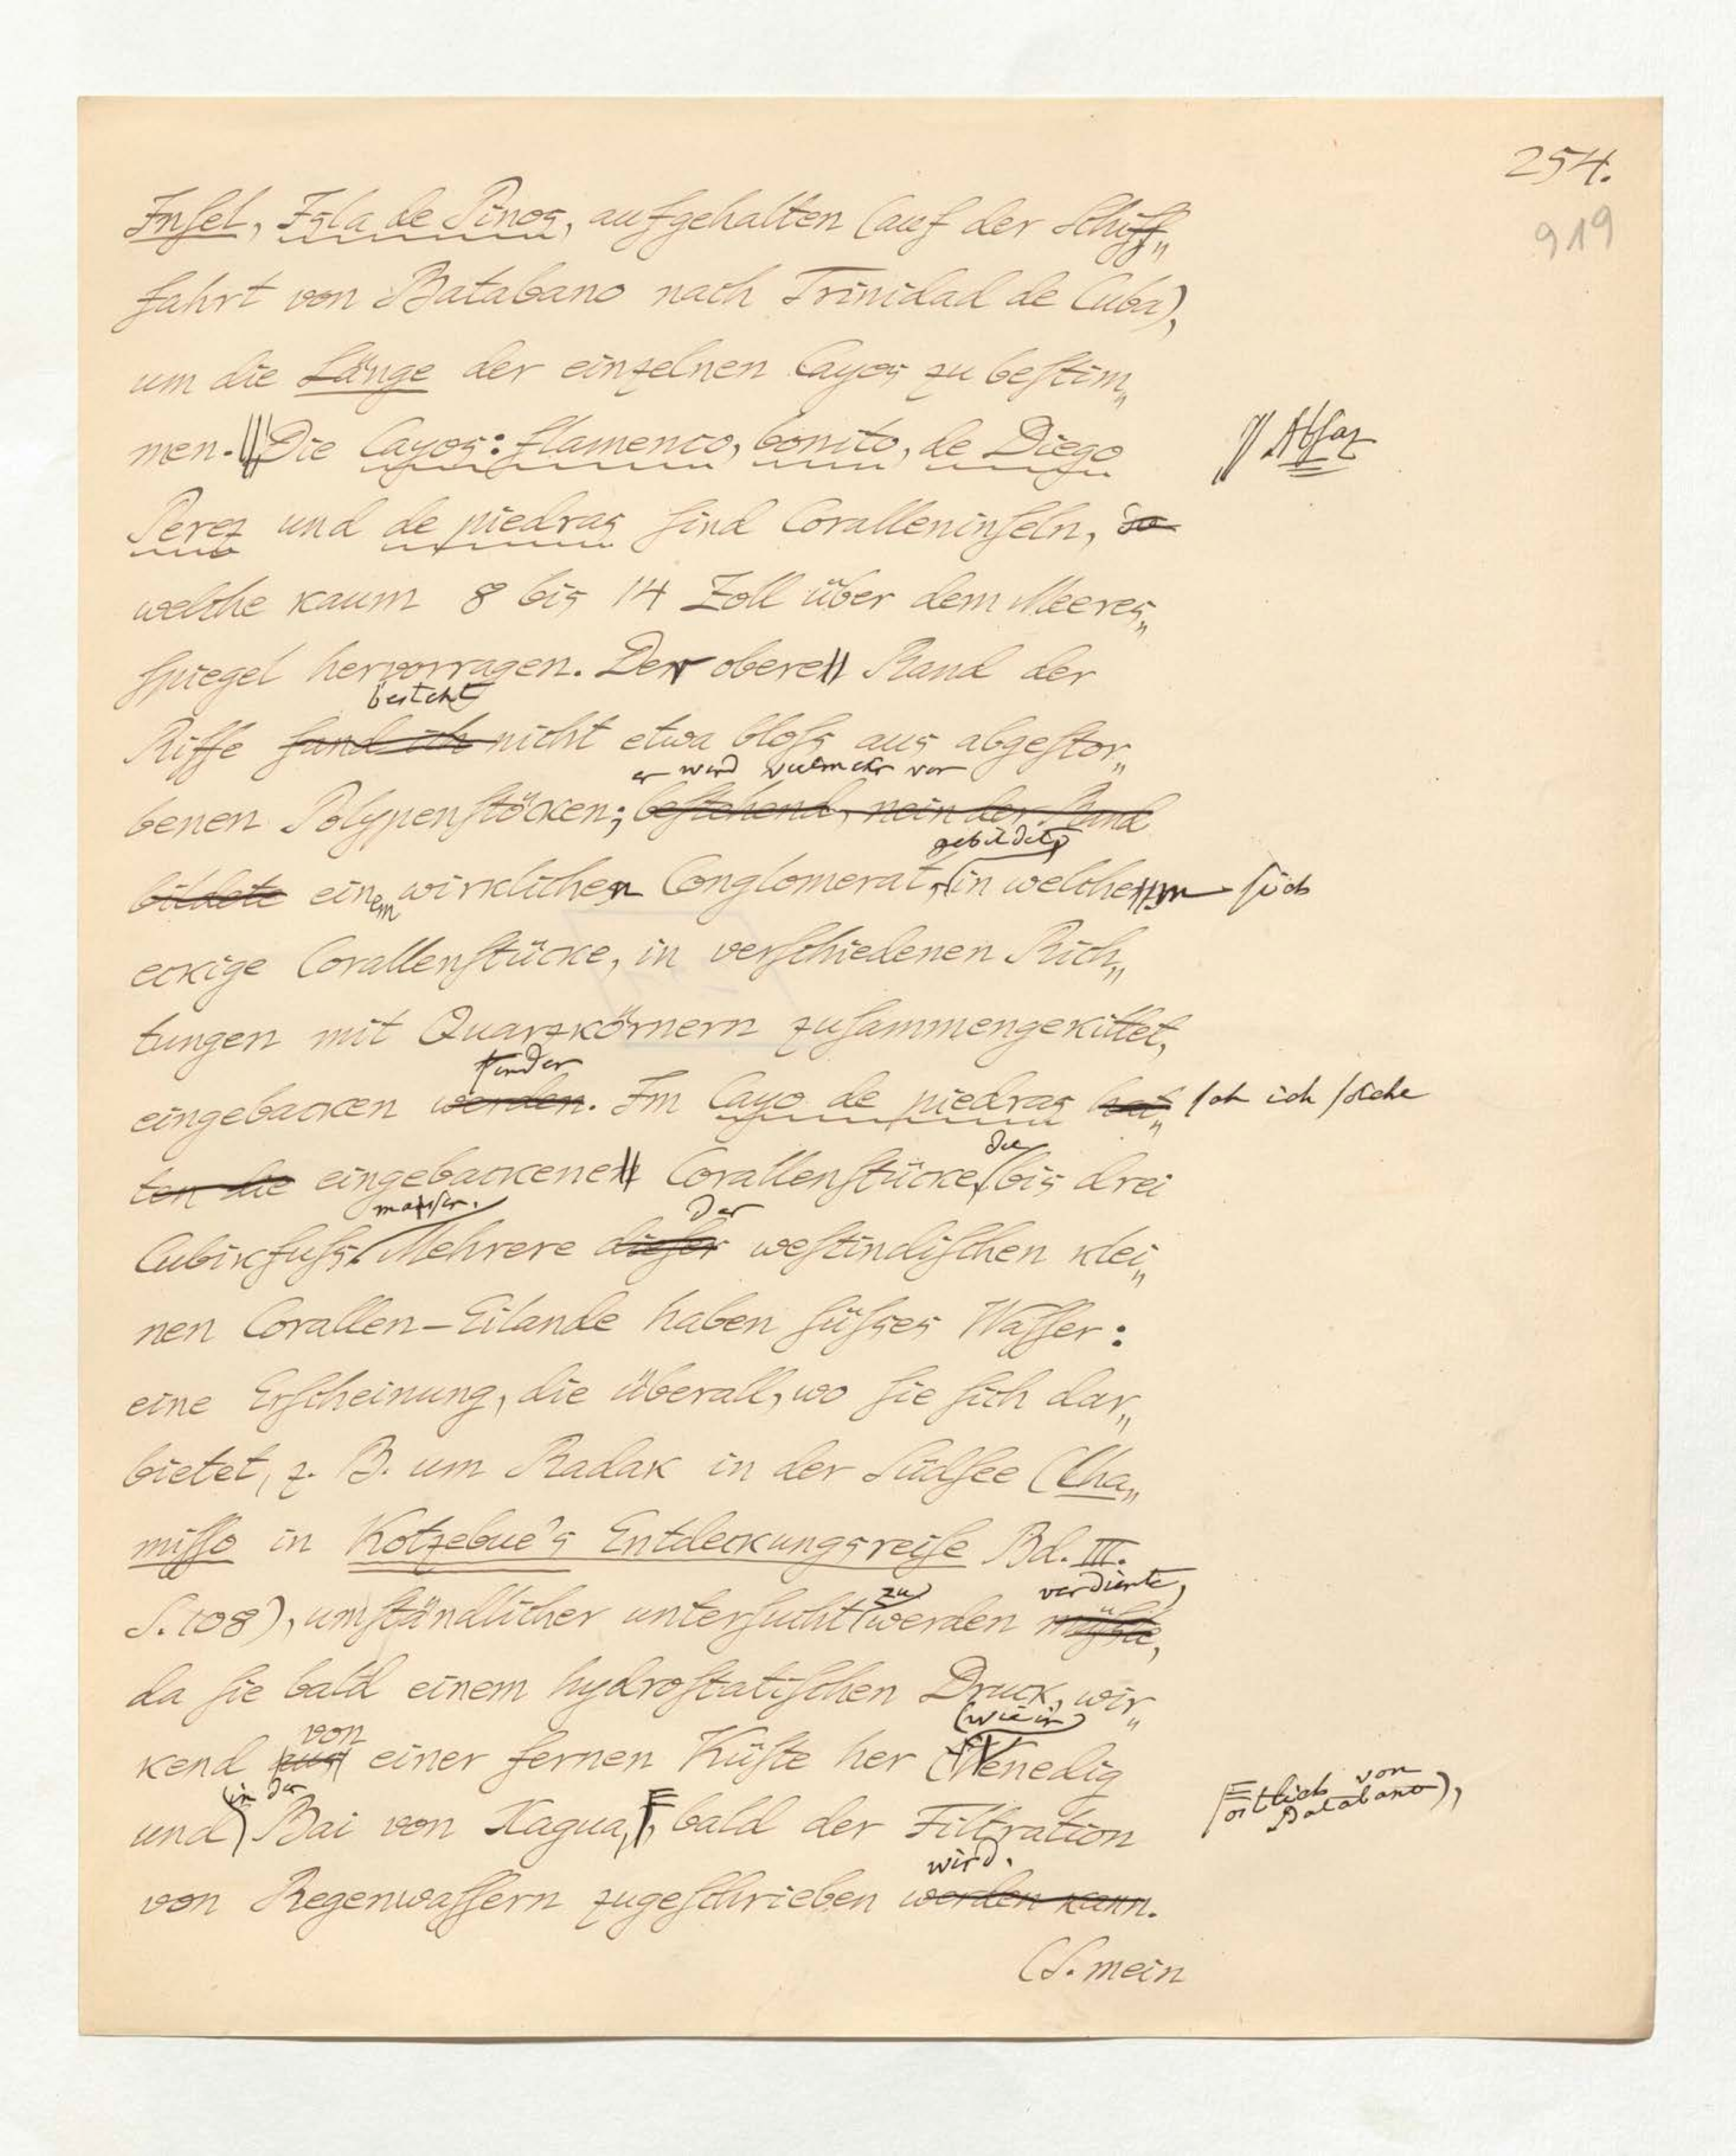 254.
919
Inſel, Isla de Pinos, aufgehalten (auf der Schiff„
fahrt von Batabano nach Trinidad de Cuba),
um die Länge der einzelnen Cayos zu beſtim„
men. Die Cayos: flamenco, bonito, de Diego
Abſaz
Perez und de piedras ſind Coralleninſeln,
welche kaum 8 bis 14 Zoll über dem Meeres„
ſpiegel hervorragen. Der obere Rand der
besteht
Riffe fand ich nicht etwa bloſs aus abgeſtor„
er wird vielmehr von
benen Polypenſtöcken; beſtehend, nein der Rand
gebildet,
bildete einem wirklichen Conglomerat, in welchem ſich
eckige Corallenſtücke, in verſchiedenen Rich„
tungen mit Quarzkörnern zuſammengekittet,
finden
eingebacken werden. Im Cayo de piedras hat„ ſah ich ſolche
die
ten die eingebackene Corallenſtücke, bis drei
maſſen. Der
Cubikfuſs. Mehrere dieſer weſtindiſchen klei„
nen Corallen-Eilande haben ſüſses Waſſer:
eine Erſcheinung, die überall, wo ſie ſich dar„
bietet, z. B. um Radak in der Südſee (Cha„
miſſo in Kotzebue's Entdeckungsreiſe Bd. III.
zu verdiente,
S. 108), umſtändlicher unterſucht werden müſste,
da ſie bald einem hydroſtatiſchen Druck, wir„
von (wie in
kend aus einer fernen Küſte her (Venedig
in der
und Bai von Xagua, bald der Filtration
östlich von
Batabano),
wird.
von Regenwaſſern zugeſchrieben werden kann.
(S. mein